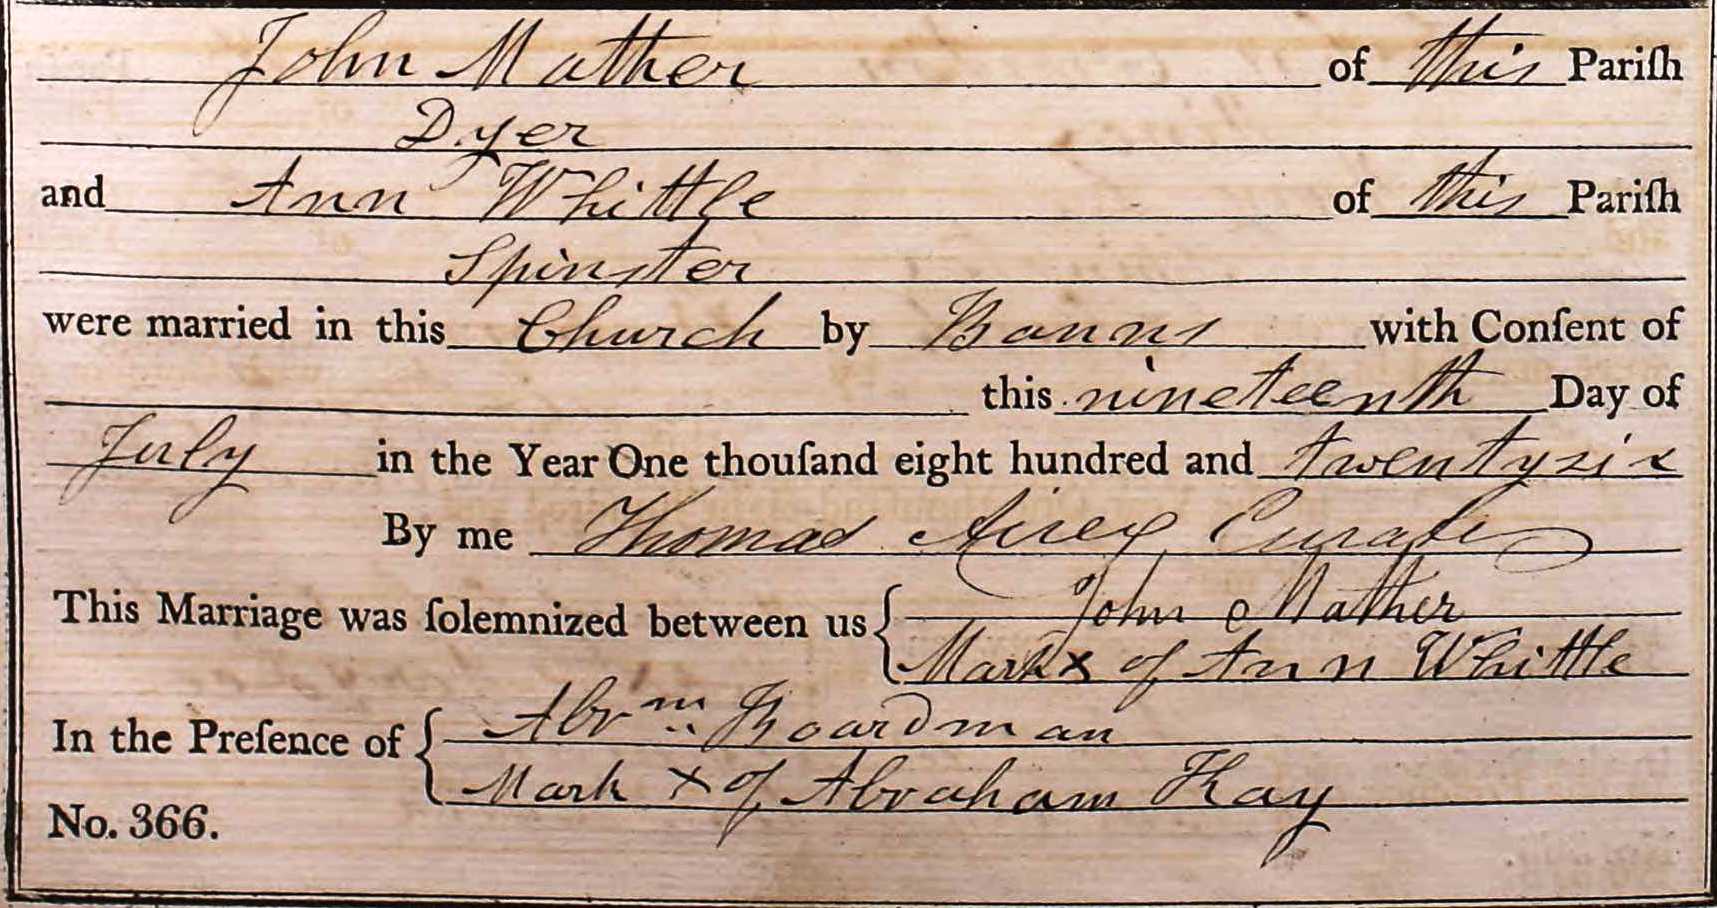 John Mather of this Pariſh
Dyer
and Ann Whittle of this Pariſh
Spinster
were married in this Church by Banns with Conſent of
this nineteenth Day of
July in the Year One thouſand eight hundred and twentysix
By me Thomas Airey Curate
This Marriage was ſolemnized between us { John Mather
Mark x of Ann Whittle
In the Preſence of { Abrm. Boardman
Mark x of Abraham Kay
No. 366.